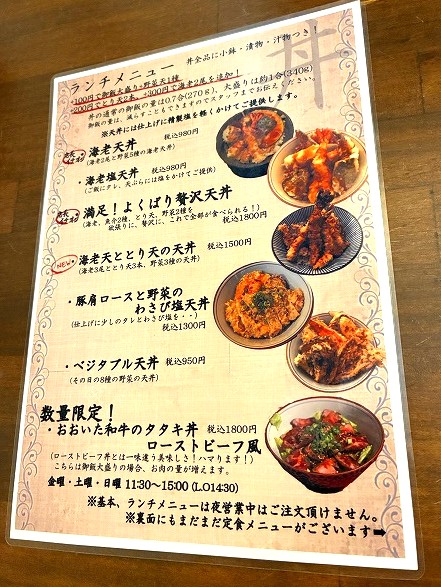 ランチメニュー 丼全品に小鉢・漬物・汁物つき!
・100円で御飯大盛り・野菜天1種
・200円でとり天2本、+300円で海老2尾を追加!
丼の通常の御飯の量は0.7合(270g)、大盛りは約1合(340g)
御飯の量は、減らすこともできますのでスタッフまでお伝えください。
※天丼には仕上げに精製塩を軽くかけてご提供します。
丼
・海老天丼 税込980円
(海老2尾と野菜5種の海老天丼)
・海老塩天丼 税込980円
(ご飯にタレ、天ぷらには塩をかけてご提供)
・満足!よくばり贅沢天丼
(海老、魚介2種、とり天、野菜2種を 税込1800円
欲張りに、贅沢に、これで全部が食べられる!)
NEW
・海老天ととり天の天丼 税込1500円
(海老3尾ととり天3本、野菜3種の天丼)
・豚肩ロースと野菜の
わさび塩天丼
(仕上げに少しのタレとわさび塩を・・)
税込1300円
・ベジタブル天丼 税込950円
(その日の8種の野菜の天丼)
数量限定!
・おおいた和牛のタタキ丼 税込1800円
ローストビーフ風
(ローストビーフ丼とは一味違う美味しさ!ハマります!)
こちらは御飯大盛りの場合、お肉の量が増えます。
金曜・土曜・日曜 11:30~15:00 (L.O14:30)
※基本、ランチメニューは夜営業中はご注文頂けません。
※裏面にもまだまだ定食メニューがございます➡